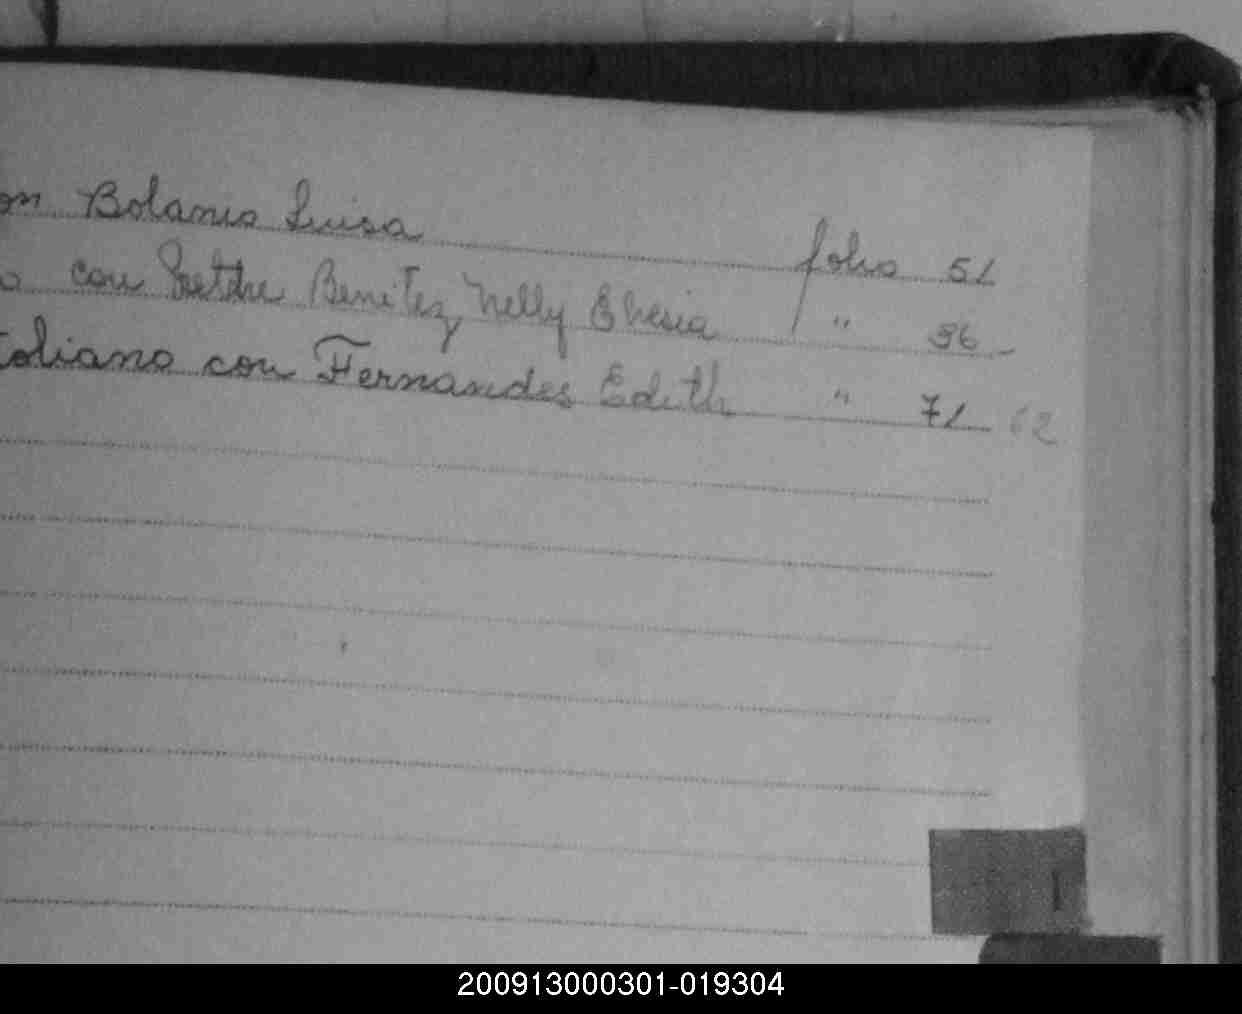 on Bolanio Luisa folio 51
o con Benitez Nelly " 96
toliano con Fernandes Edith " 71 62
I
200913000301-019304